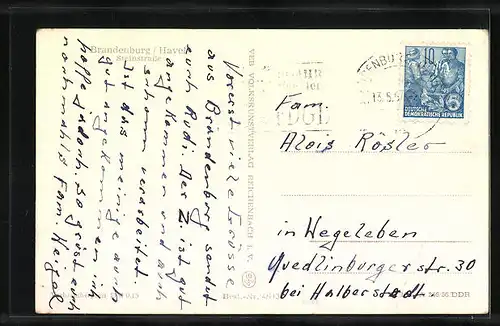 Brandenburg / Havel
Steinstraße
Vorerst viele Grüsse
aus Brandenburg sendet
euch Rudi. Der Z. ist gut
angekommen und auch
schonn verarbeitet.
Ist das meinige auch
gut angekommen
hoffe jedoch. So grüst euch
nochmahls Fam.
VEB VOLKSKUNSTVERLAG REICHENBACH I. V.
10
DEUTSCHE
DEMOKRATISCHE REPUBLIK
Fam.
Alois Rösler
in Wegeleben
Quedlinburger str. 30
bei Halberstadt
DDR